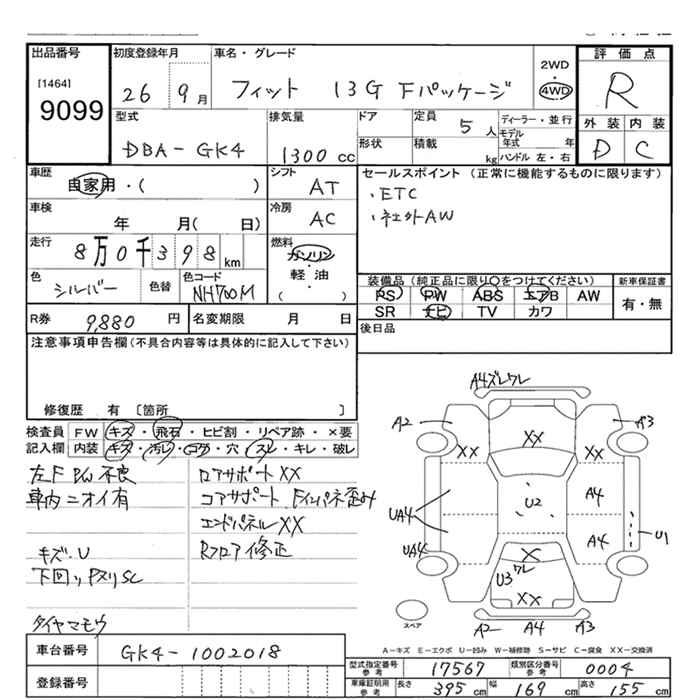 出品番号 初度登録年月 車名・グレード 2WD 評価点
[1464] 9099 26 9月 フィット 13G Fパッケージ 4WD R
型式 排気量 ドア 定員 5人 ディーラー・並行 外装 内装
DBA-GK4 1300cc 形状 積載 kg モデル年式 年 ハンドル 左・右 D C
車歴 自家用・( ) シフト AT セールスポイント (正常に機能するものに限ります)
・ETC
車検 年 月(日) 冷房 AC ・社外AW
走行 8万0千398km 燃料 ガソリン・軽油 ( )
色 シルバー 色替 色コード NH700M 装備品(純正品に限り○をつけてください) 新車保証書
PS PW ABS エアB AW 有・無
SR ナビ TV カワ
R券 9,880円 名変期限 月 日 後日品
注意事項申告欄(不具合内容等は具体的に記入して下さい)
修復歴 有 〔箇所 〕
検査員 FW キズ・飛石・ヒビ割・リペア跡・×要
記入欄 内装 キズ・汚レ・コゲ・穴・スレ・キレ・破レ
左F P/W 不良 ロアサポートXX
車内ニオイ有 コアサポート、Fインパネ歪み
エンドパネルXX
キズ・U Rフロア修正
下回りPヌリSC
タイヤマモウ
A4ズレワレ
A2 A3
XX XX XX
UA4 U2 A4
UA4 A4 U1
XX
U3ワレ
XX
スペア A2 A4 A3
A-キズ E-エクボ U-凹み W-補修跡 S-サビ C-腐食 XX-交換済
車台番号 GK4-1002018 型式指定番号 参考 17567 類別区分番号 参考 0004
登録番号 車庫証明用 参考 長さ 395cm 幅 169cm 高さ 155cm